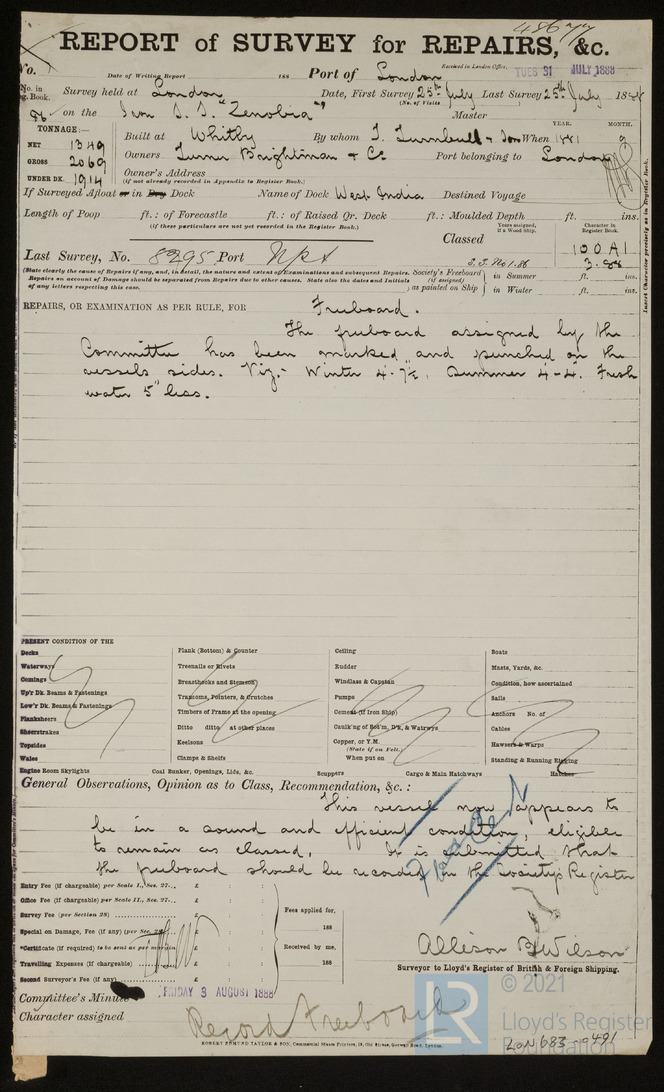 REPORT of SURVEY for REPAIRS, &c.
No.
Date of Writing Report 188
Port of London
Received in London Office,
TUES 31 JULY 1888
No. in Reg. Book.
Survey held at London
Date, First Survey 25th July Last Survey 25th July 1888
(No. of Visits)
86 on the Iron S.S. "Zenobia"
Master
TONNAGE:—
NET 1349
GROSS 2069
UNDER DK. 1914
YEAR. MONTH.
Built at Whitby By whom T. Turnbull & Son When 1881 9
Owners Turner Brightman & Co Port belonging to London
Owner's Address
(if not already recorded in Appendix to Register Book.)
If Surveyed Afloat or in Dry Dock Name of Dock West India Destined Voyage
Length of Poop ft.: of Forecastle ft.: of Raised Qr. Deck ft.: Moulded Depth ft. ins.
(if these particulars are not yet recorded in the Register Book.)
Classed
Years assigned, if a Wood Ship.
Character in Register Book.
100A1
3.88
Last Survey, No. 8295 Port Npt
S.S. No 1.86
(State clearly the cause of Repairs if any, and, in detail, the nature and extent of Examinations and subsequent Repairs.
Repairs on account of Damage should be separated from Repairs due to other causes. State also the dates and Initials
of any letters respecting this case.
Society's Freeboard (if assigned) as painted on Ship
in Summer ft. ins.
in Winter ft. ins.
Insert Character precisely as in Register Book.
REPAIRS, OR EXAMINATION AS PER RULE, FOR Freeboard.
The freeboard assigned by the
Committee has been marked and punched on the
vessels sides. Viz:- Winter 4-7½, Summer 4-4. Fresh
water 5" less.
PRESENT CONDITION OF THE
Decks
Waterways
Comings
Up'r Dk. Beams & Fastenings
Low'r Dk. Beams & Fastenings
Planksheers
Sheerstrakes
Topsides
Wales
Engine Room Skylights
Plank (Bottom) & Counter
Treenails or Rivets
Breasthooks and Stemson
Transoms, Pointers, & Crutches
Timbers of Frame at the opening
Ditto ditto at other places
Keelsons
Clamps & Shelfs
Coal Bunker, Openings, Lids, &c.
Ceiling
Rudder
Windlass & Capstan
Pumps
Cement (if Iron Ship)
Caulking of Bot'm, D'k, & Watrwys
Copper, or Y.M.
(State if on Felt.)
When put on
Scuppers
Cargo & Main Hatchways
Boats
Masts, Yards, &c.
Condition, how ascertained
Sails
Anchors No. of
Cables
Hawsers & Warps
Standing & Running Rigging
Hatches
General Observations, Opinion as to Class, Recommendation, &c.:
This vessel now appears to
be in a sound and efficient condition, eligible
to remain as classed. It is submitted that
the freeboard should be recorded in the Society's Register
Entry Fee (if chargeable) per Scale I., Sec. 27... £ : :
Office Fee (if chargeable) per Scale II., Sec. 27... £ : :
Survey Fee (per Section 28) £ : :
Special on Damage, Fee (if any) (per Sec. 28) £ : :
*Certificate (if required) to be sent as per margin £ : :
Travelling Expenses (if chargeable) £ : :
Second Surveyor's Fee (if any) £ : :
Fees applied for,
188
Received by me,
188
Allison B Wilson
Surveyor to Lloyd's Register of British & Foreign Shipping.
Committee's Minute
FRIDAY 3 AUGUST 1888
Character assigned Record Freeboard
ROBERT EDMUND TAYLOR & SON, Commercial Steam Printers, 19, Old Street, Goswell Road, London.
© 2021
LR
Lloyd's Register
Foundation
LON683-0491